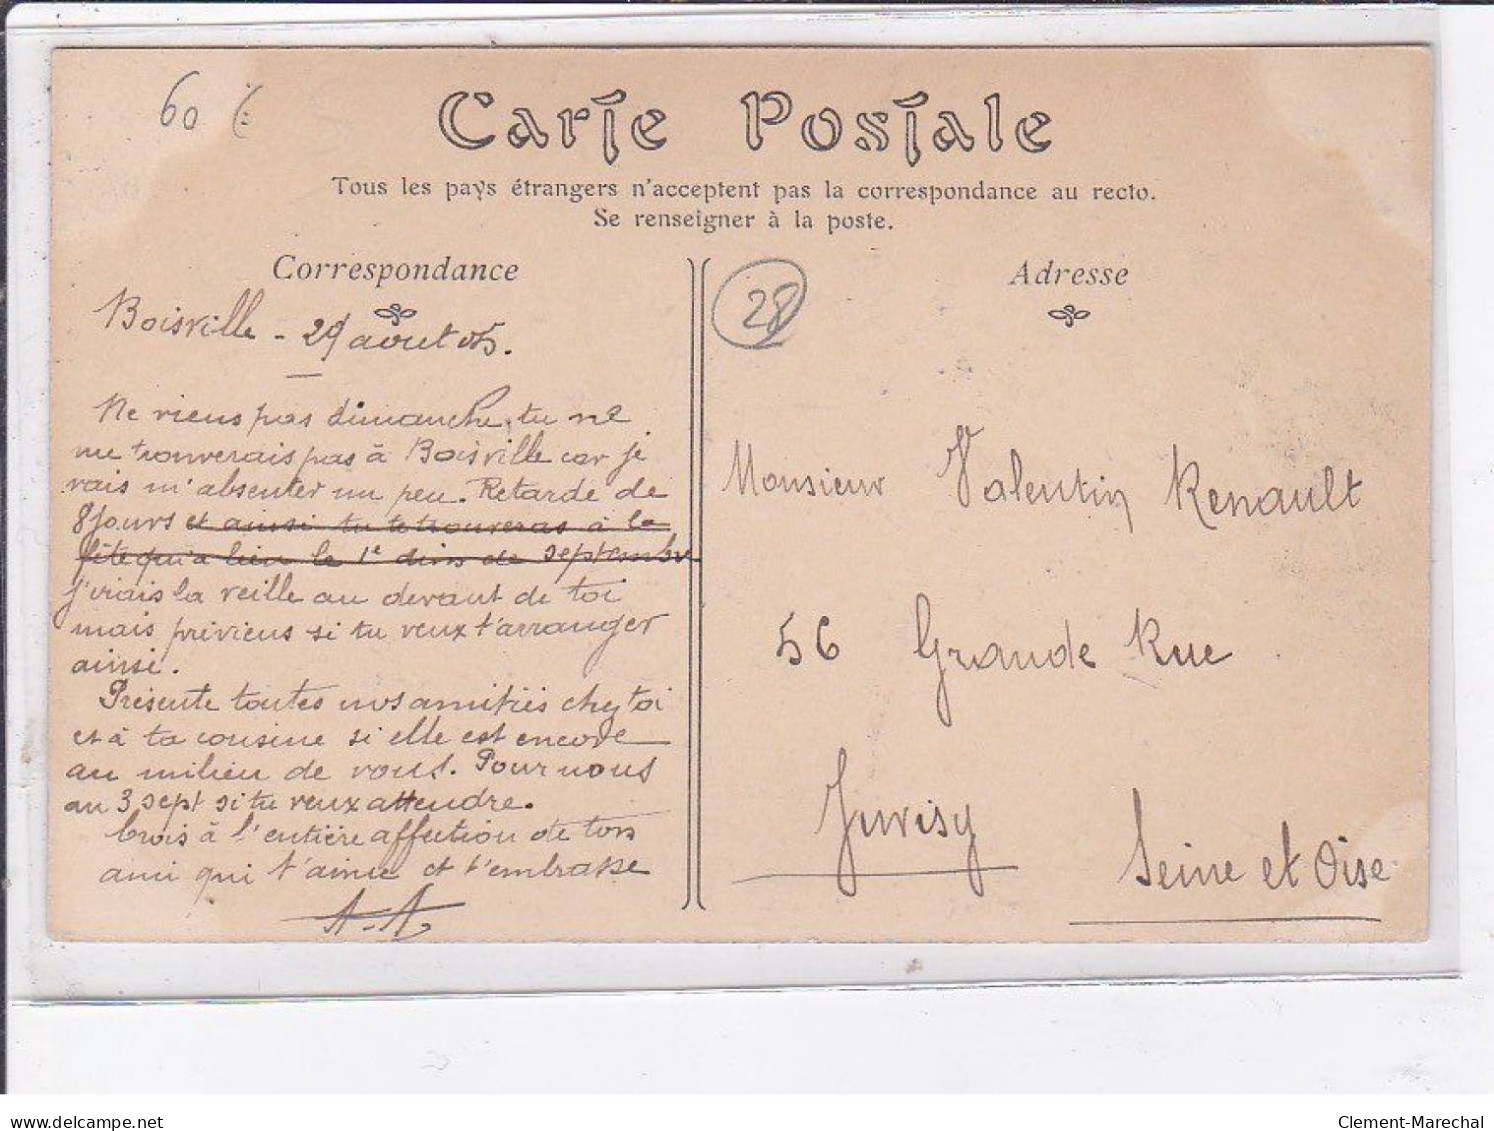 60 €
Carte Postale
Tous les pays étrangers n'acceptent pas la correspondance au recto.
Se renseigner à la poste.
Correspondance
Boisville - 29 aout 05.
Ne viens pas dimanche, tu ne
me trouverais pas à Boisville car je
vais m'absenter un peu. Retarde de
8 jours et ainsi tu te trouveras à la
fête qu'a lieu le 1e dim de septembre
j'irais la veille au devant de toi
mais préviens si tu veux t'arranger
ainsi.
Présente toutes nos amitiés chez toi
et à ta cousine si elle est encore
au milieu de vous. Pour nous
au 3 sept si tu veux attendre.
Crois à l'entière affection de ton
ami qui t'aime et t'embrasse
A. A.
28
Adresse
Monsieur Valentin Renault
56 Grande Rue
Juvisy
Seine et Oise
delcampe.net
Clement-Marechal